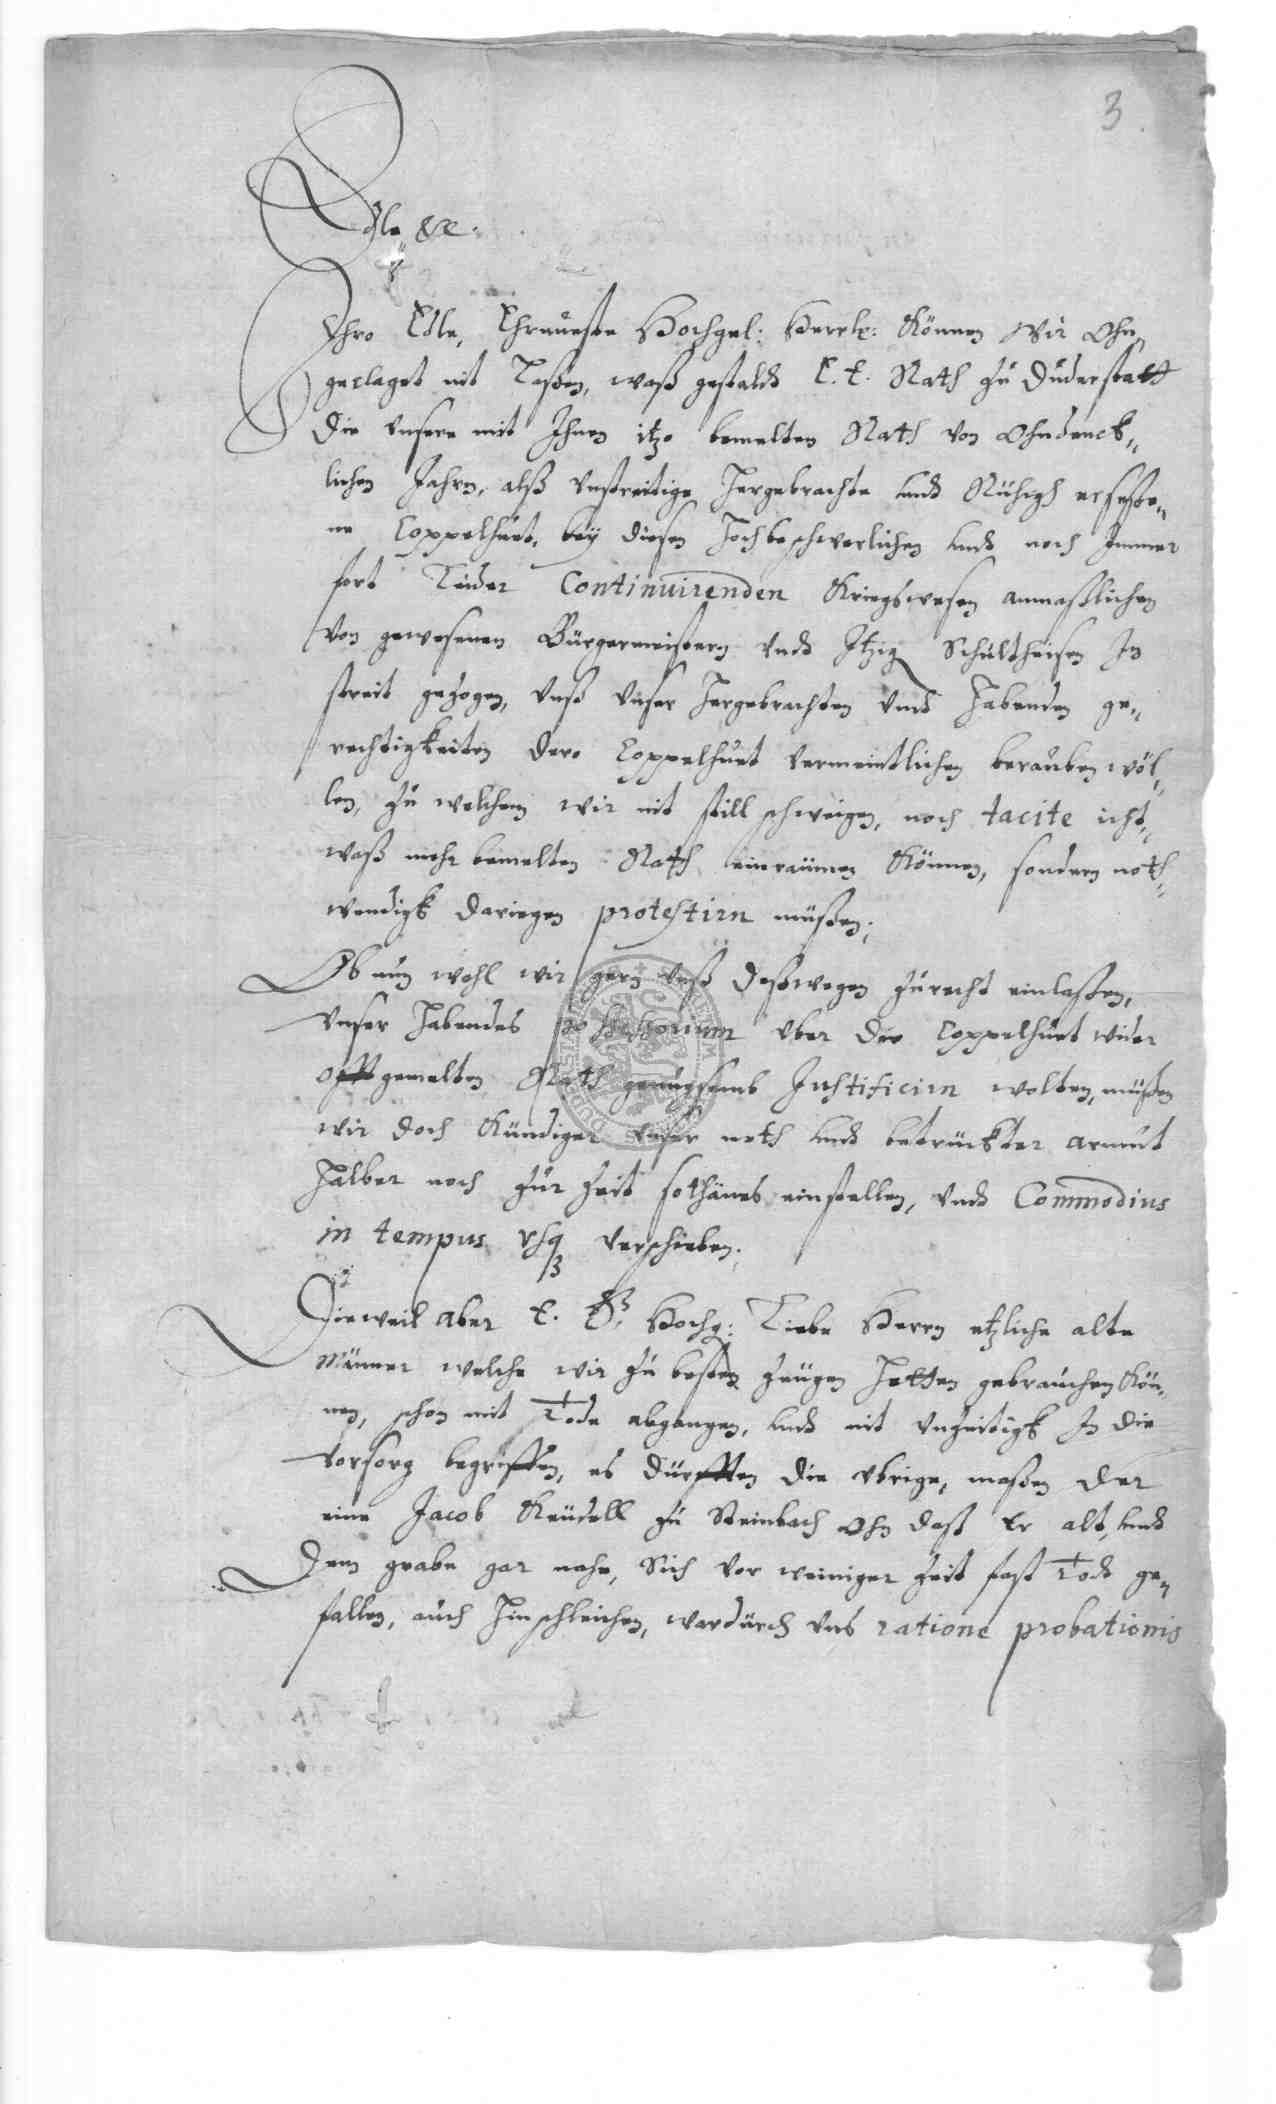 3.
Edle &c.
Ihro Edle, Ehrnueste Hochgel: Herrl: Können wir ohn„
geclaget nit Laßen, waß gestaldt E. E. Rath zu Duderstatt
die unsere mit Ihnen itzo bemelten Rath von ohndenck„
lichen Jahrn, alß unstreitige hergebrachte undt Ruhigh erseße„
ne Coppelhuet, bey diesen hochbeschwerlichen undt noch Immer
fort Leider Continuirenden Kriegswesen anmaßlichen
von gewesenen Bürgermeistern undt Itzig Schultheisen In
streit gezogen, unß unser hergebrachten undt habenden ge„
rechtigkeiten dero Coppelhuet vermeintlichen berauben wöl„
len, zu welchem wir nit still schweigen, noch tacite icht„
waß mehr bemelten Rath einraümen Können, sondern noth„
wendigk dariegen protestirn müßen;
Ob nun wohl wir gern unß deßwegen zurecht einlaßen,
unser habendes possessorium uber die Coppelhuet wider
offtgemelten Rath genugsamb Justificirn wolten, müßen
wir doch Kündiger unser noth undt betrückter armut
halber noch zur Zeit sothanes einstellen, undt Commodius
in tempus usq verschieben;
Dieweil aber E. G. Hochg: Liebe Herrn etzliche alte
Männer welche wir zu besten zeugen hetten gebrauchen Kön„
nen, schon mit Tode abgangen, undt nit unzeitigk In die
vorsorg begriffen, es dürfften die ubrige, maßen der
eine Jacob Keudell zu Steinbach ohn daß Er alt, undt
dem grabe gar nahe, Sich vor weiniger Zeit fast Todt ge„
fallen, auch hinschleichen, wordurch uns ratione probationis